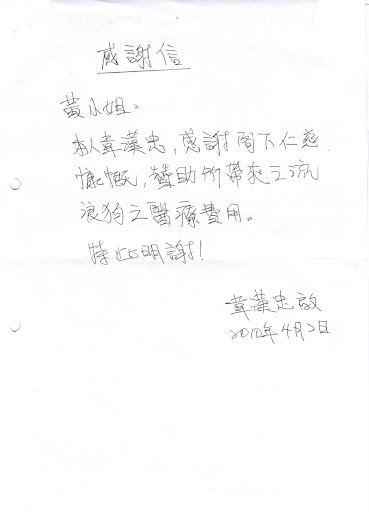 感謝信
黃小姐：
本人韋漢忠，感謝閣下仁慈
慷慨，贊助所帶來之流
浪狗之醫療費用。
特此明謝！
韋漢忠啟
2010年4月2日